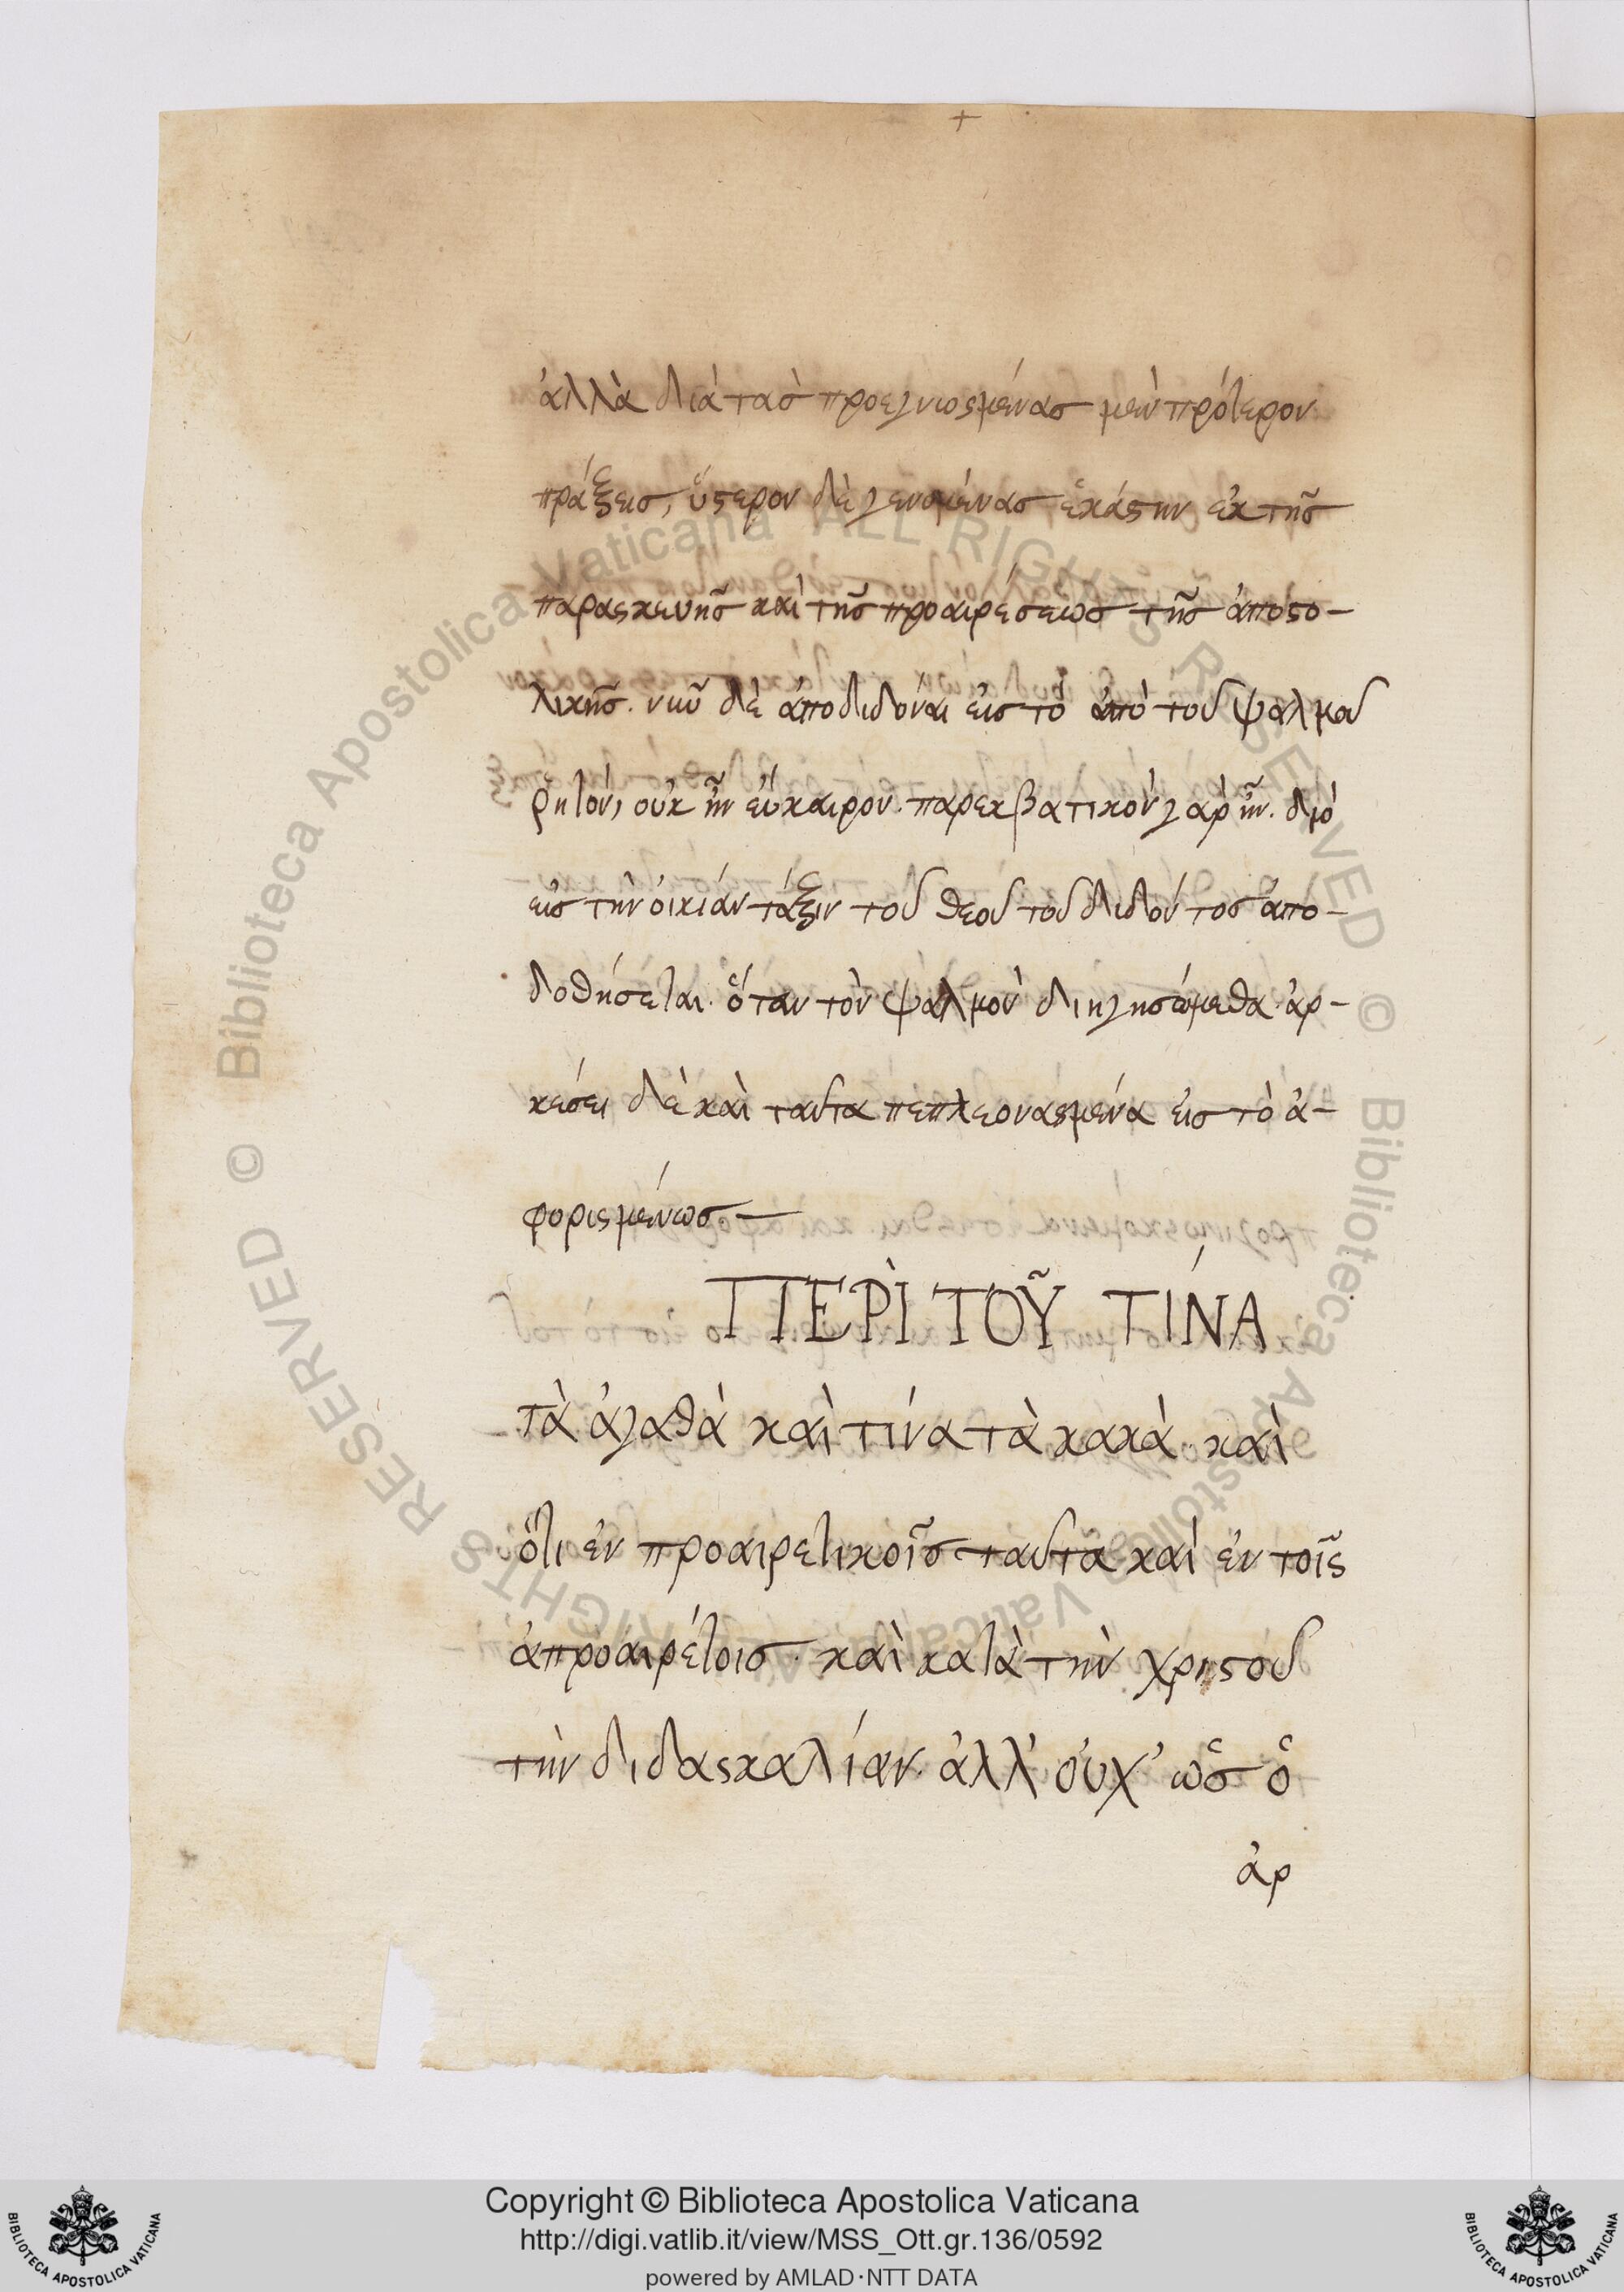 ἀλλὰ διὰ τὰσ προεγνωσμένασ μὲν πρότερον
πράξεισ, ὕστερον δὲ γενομένασ ἑκάστην ἐκ τῆσ
παρασκευῆσ καὶ τῆσ προαιρέσεωσ τῆσ ἀποστο-
λικῆσ. νῦν δὲ ἀποδιδόναι εἰσ τὸ ἀπὸ τοῦ ψαλμοῦ
ῥητόν, οὐκ ἦν εὔκαιρον. παρεκβατικὸν γὰρ ἦν. διὸ
εἰσ τὴν οἰκίαν τάξιν τοῦ θεοῦ τοῦ διδόντοσ ἀπο-
δοθήσεται. ὅταν τὸν ψαλμὸν διηγησώμεθα. ἀρ-
κέσει δὲ καὶ ταῦτα πεπλεονασμένα εἰσ τὸ ἀ-
φορισμένωσ—
ΠΕΡῚ ΤΟΥ͂ ΤΊΝΑ
τὰ ἀγαθὰ καὶ τίνα τὰ κακὰ. καὶ
ὅτι ἐν προαιρετικοῖσ ταῦτα καὶ ἐν τοῖς
ἀπροαιρέτοισ. καὶ κατὰ τὴν χριστοῦ
τὴν διδασκαλίαν. ἀλλ' οὐχ' ὡσ ὁ
ἀρ
© Biblioteca Apostolica Vaticana ALL RIGHTS RESERVED © Biblioteca Apostolica Vaticana ALL RIGHTS RESERVED
Copyright © Biblioteca Apostolica Vaticana
http://digi.vatlib.it/view/MSS_Ott.gr.136/0592
powered by AMLAD·NTT DATA
BIBLIOTECA APOSTOLICA VATICANA
BIBLIOTECA APOSTOLICA VATICANA